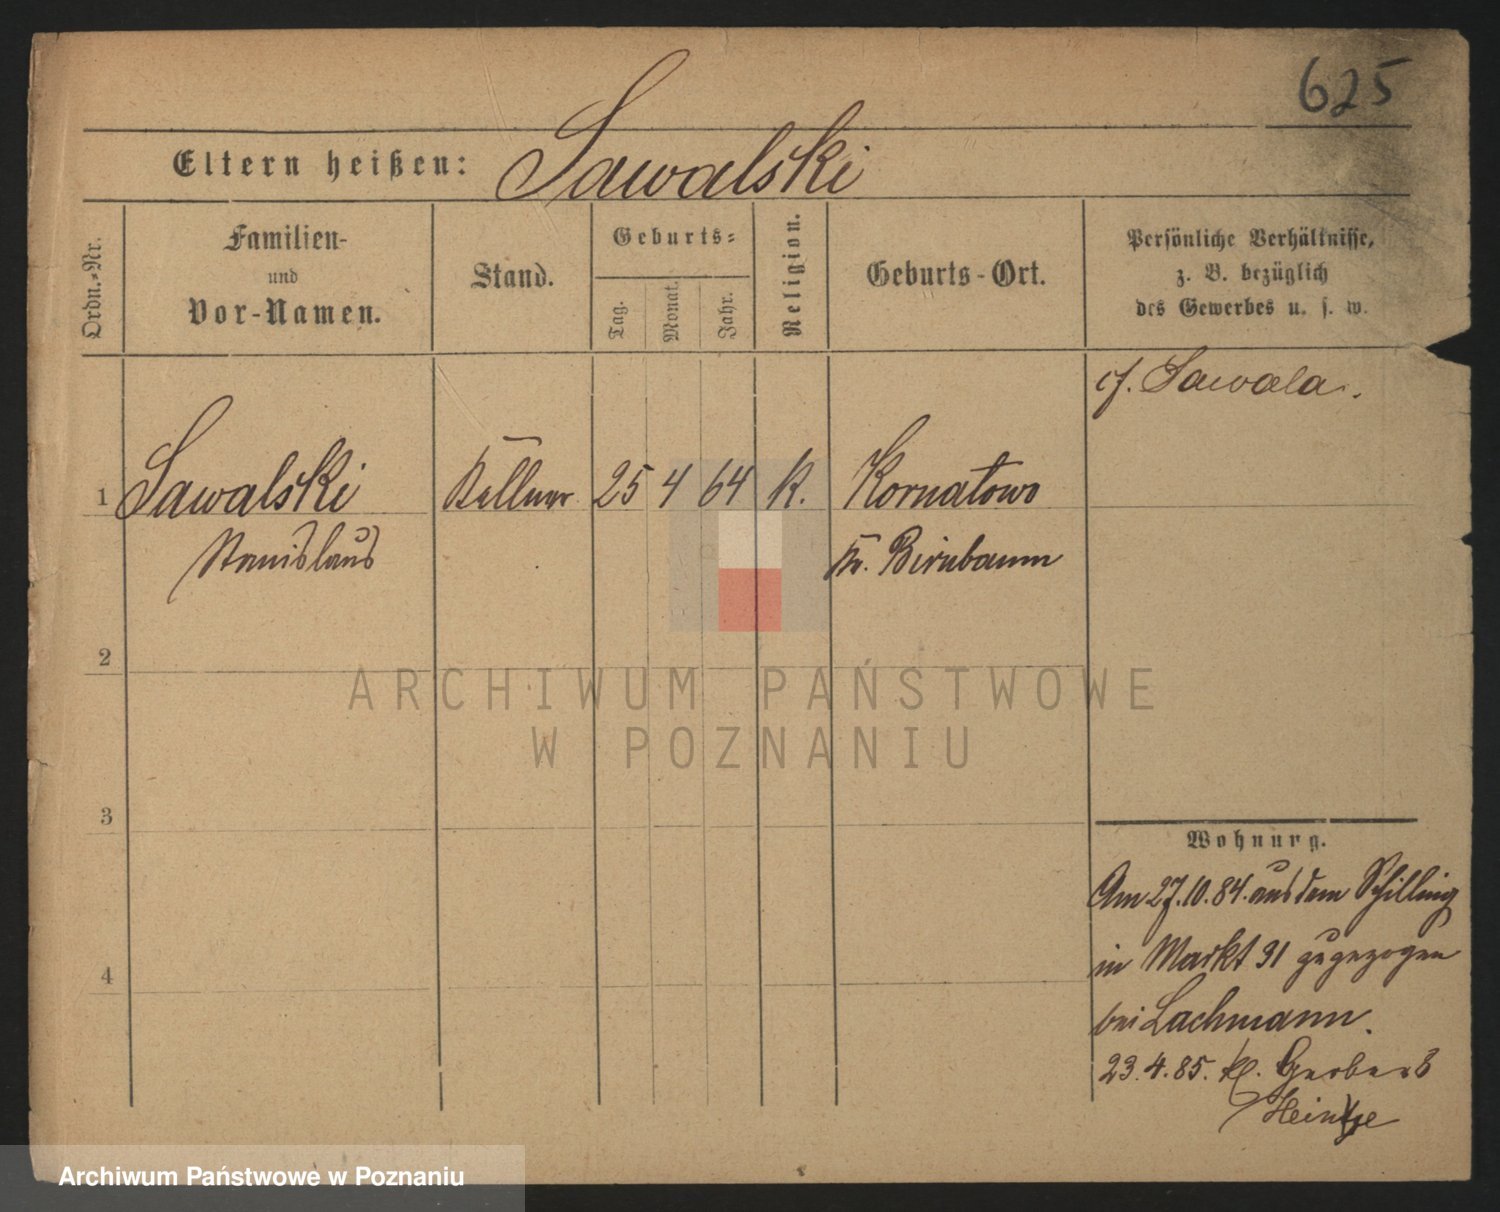 625
Eltern heißen: Sawalski
Ordn.-Nr.
Familien-
und
Vor-Namen.
Stand.
Geburts-
Tag.
Monat.
Jahr.
Religion.
Geburts-Ort.
Persönliche Verhältnisse,
z. B. bezüglich
des Gewerbes u. s. w.
cf. Sawala.
1 Sawalski Kellner 25 4 64 K. Kornatowo
Stanislaus Kr. Birnbaum
2
3
4
Wohnung.
Am 27.10.84. aus dem Schilling
in Markt 91 zugezogen
bei Lachmann.
23.4.85. Kl. Gerber 3
Heintze
ARCHIWUM PAŃSTWOWE
W POZNANIU
Archiwum Państwowe w Poznaniu